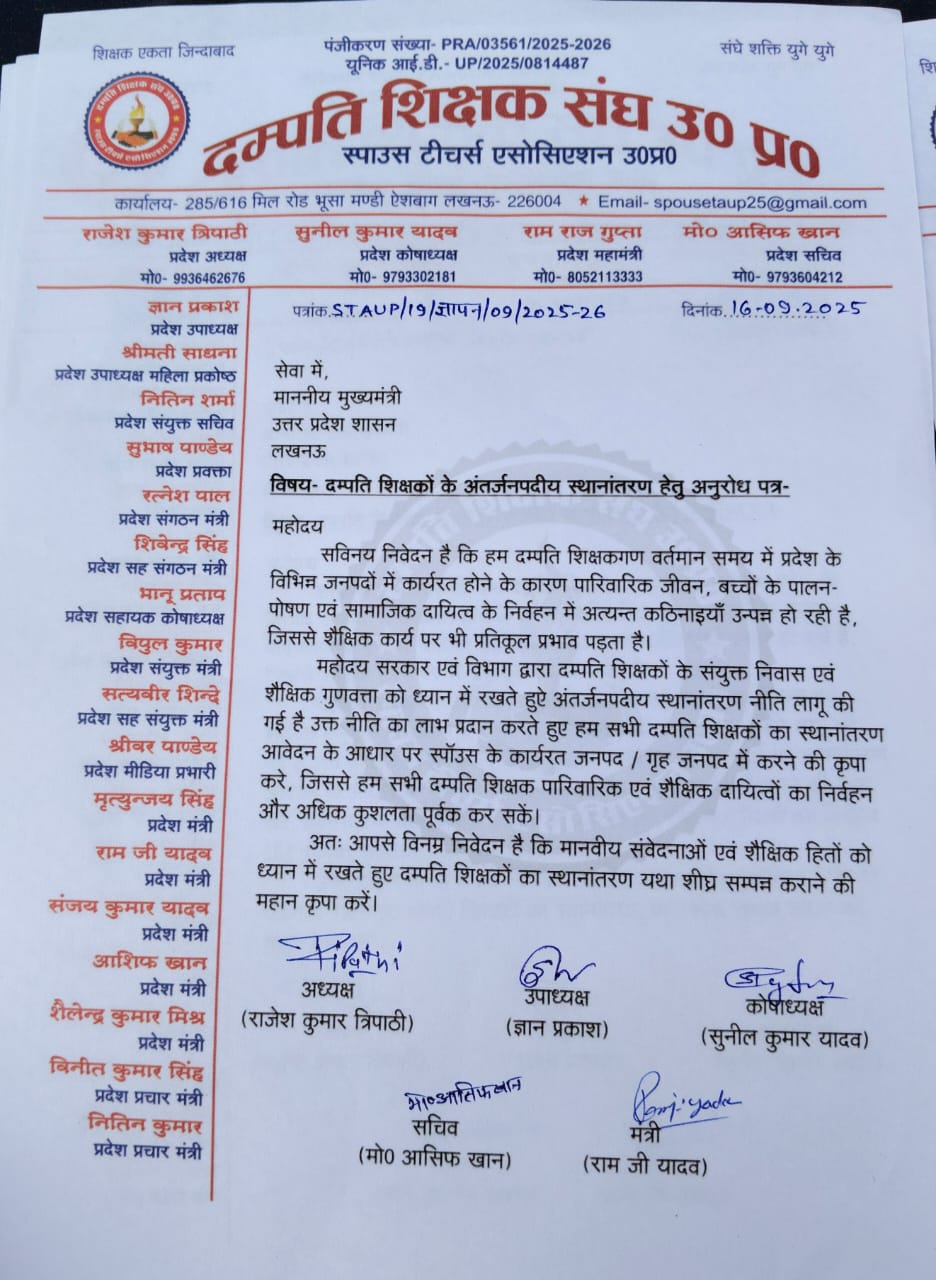 शिक्षक एकता जिन्दाबाद
पंजीकरण संख्या- PRA/03561/2025-2026
यूनिक आई.डी.- UP/2025/0814487
संघे शक्ति युगे युगे
दम्पति शिक्षक संघ उ0 प्र0
स्पाउस टीचर्स एसोसिएशन उ0प्र0
कार्यालय- 285/616 मिल रोड भूसा मण्डी ऐशबाग लखनऊ- 226004 ★ Email- spousetaup25@gmail.com
राजेश कुमार त्रिपाठी
प्रदेश अध्यक्ष
मो0- 9936462676
सुनील कुमार यादव
प्रदेश कोषाध्यक्ष
मो0- 9793302181
राम राज गुप्ता
प्रदेश महामंत्री
मो0- 8052113333
मो0 आसिफ खान
प्रदेश सचिव
मो0- 9793604212
ज्ञान प्रकाश
प्रदेश उपाध्यक्ष
श्रीमती साधना
प्रदेश उपाध्यक्ष महिला प्रकोष्ठ
नितिन शर्मा
प्रदेश संयुक्त सचिव
सुभाष पाण्डेय
प्रदेश प्रवक्ता
रत्नेश पाल
प्रदेश संगठन मंत्री
शिवेन्द्र सिंह
प्रदेश सह संगठन मंत्री
भानू प्रताप
प्रदेश सहायक कोषाध्यक्ष
विपुल कुमार
प्रदेश संयुक्त मंत्री
सत्यवीर शिन्दे
प्रदेश सह संयुक्त मंत्री
श्रीवर पाण्डेय
प्रदेश मीडिया प्रभारी
मृत्युन्जय सिंह
प्रदेश मंत्री
राम जी यादव
प्रदेश मंत्री
संजय कुमार यादव
प्रदेश मंत्री
आशिफ खान
प्रदेश मंत्री
शैलेन्द्र कुमार मिश्र
प्रदेश मंत्री
विनीत कुमार सिंह
प्रदेश प्रचार मंत्री
नितिन कुमार
प्रदेश प्रचार मंत्री
पत्रांक.STAUP/19/ज्ञापन/09/2025-26
दिनांक.16-09.2025
सेवा में,
माननीय मुख्यमंत्री
उत्तर प्रदेश शासन
लखनऊ
विषय- दम्पति शिक्षकों के अंतर्जनपदीय स्थानांतरण हेतु अनुरोध पत्र-
महोदय
सविनय निवेदन है कि हम दम्पति शिक्षकगण वर्तमान समय में प्रदेश के
विभिन्न जनपदों में कार्यरत होने के कारण पारिवारिक जीवन, बच्चों के पालन-
पोषण एवं सामाजिक दायित्व के निर्वहन में अत्यन्त कठिनाइयाँ उत्पन्न हो रही है,
जिससे शैक्षिक कार्य पर भी प्रतिकूल प्रभाव पड़ता है।
महोदय सरकार एवं विभाग द्वारा दम्पति शिक्षकों के संयुक्त निवास एवं
शैक्षिक गुणवत्ता को ध्यान में रखते हुऐ अंतर्जनपदीय स्थानांतरण नीति लागू की
गई है उक्त नीति का लाभ प्रदान करते हुए हम सभी दम्पति शिक्षकों का स्थानांतरण
आवेदन के आधार पर स्पॉउस के कार्यरत जनपद / गृह जनपद में करने की कृपा
करे, जिससे हम सभी दम्पति शिक्षक पारिवारिक एवं शैक्षिक दायित्वों का निर्वहन
और अधिक कुशलता पूर्वक कर सकें।
अतः आपसे विनम्र निवेदन है कि मानवीय संवेदनाओं एवं शैक्षिक हितों को
ध्यान में रखते हुए दम्पति शिक्षकों का स्थानांतरण यथा शीघ्र सम्पन्न कराने की
महान कृपा करें।
अध्यक्ष
(राजेश कुमार त्रिपाठी)
उपाध्यक्ष
(ज्ञान प्रकाश)
कोषाध्यक्ष
(सुनील कुमार यादव)
मो०आसिफखान
सचिव
(मो0 आसिफ खान)
Ramji yadav
मंत्री
(राम जी यादव)